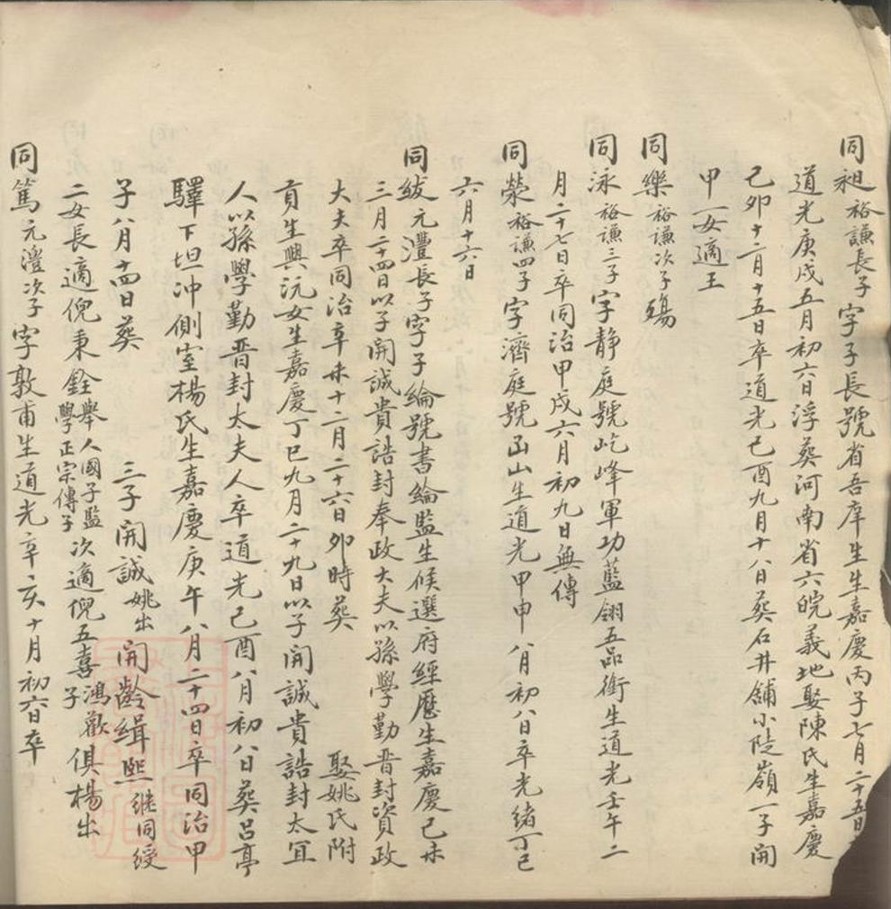 同昶裕謙長子字子長號省吾庠生生嘉慶丙子七月二十五日
道光庚戌五月初六日浮葬河南省六皖義地娶陳氏生嘉慶
己卯十二月十五日卒道光己酉九月十八日葬石井鋪小陡嶺一子開
甲一女適王
同樂裕謙次子殤
同泳裕謙三子字靜庭號屹峰軍功藍翎五品銜生道光壬午二
月二十七日卒同治甲戌六月初九日無傳
同滎裕謙四子字濟庭號函山生道光甲申八月初八日卒光緒丁巳
六月十六日
同紱元灃長子字子綸號書綸監生候選府經歷生嘉慶己未
三月二十四日以子開誠貴誥封奉政大夫以孫學勤晋封資政
大夫卒同治辛未十二月二十六日卯時葬 娶姚氏附
貢生興沅女生嘉慶丁巳九月二十九日以子開誠貴誥封太宜
人以孫學勤晋封太夫人卒道光己酉八月初八日葬呂亭
驛下坦冲側室楊氏生嘉慶庚午八月二十四日卒同治甲
子八月十四日葬 三子開誠姚出開齡緝熙继同綬
二女長適倪秉銓舉人國子監學正宗傳子次適倪五喜鴻歡子俱楊出
同篤元灃次子字敦甫生道光辛亥十月初六日卒